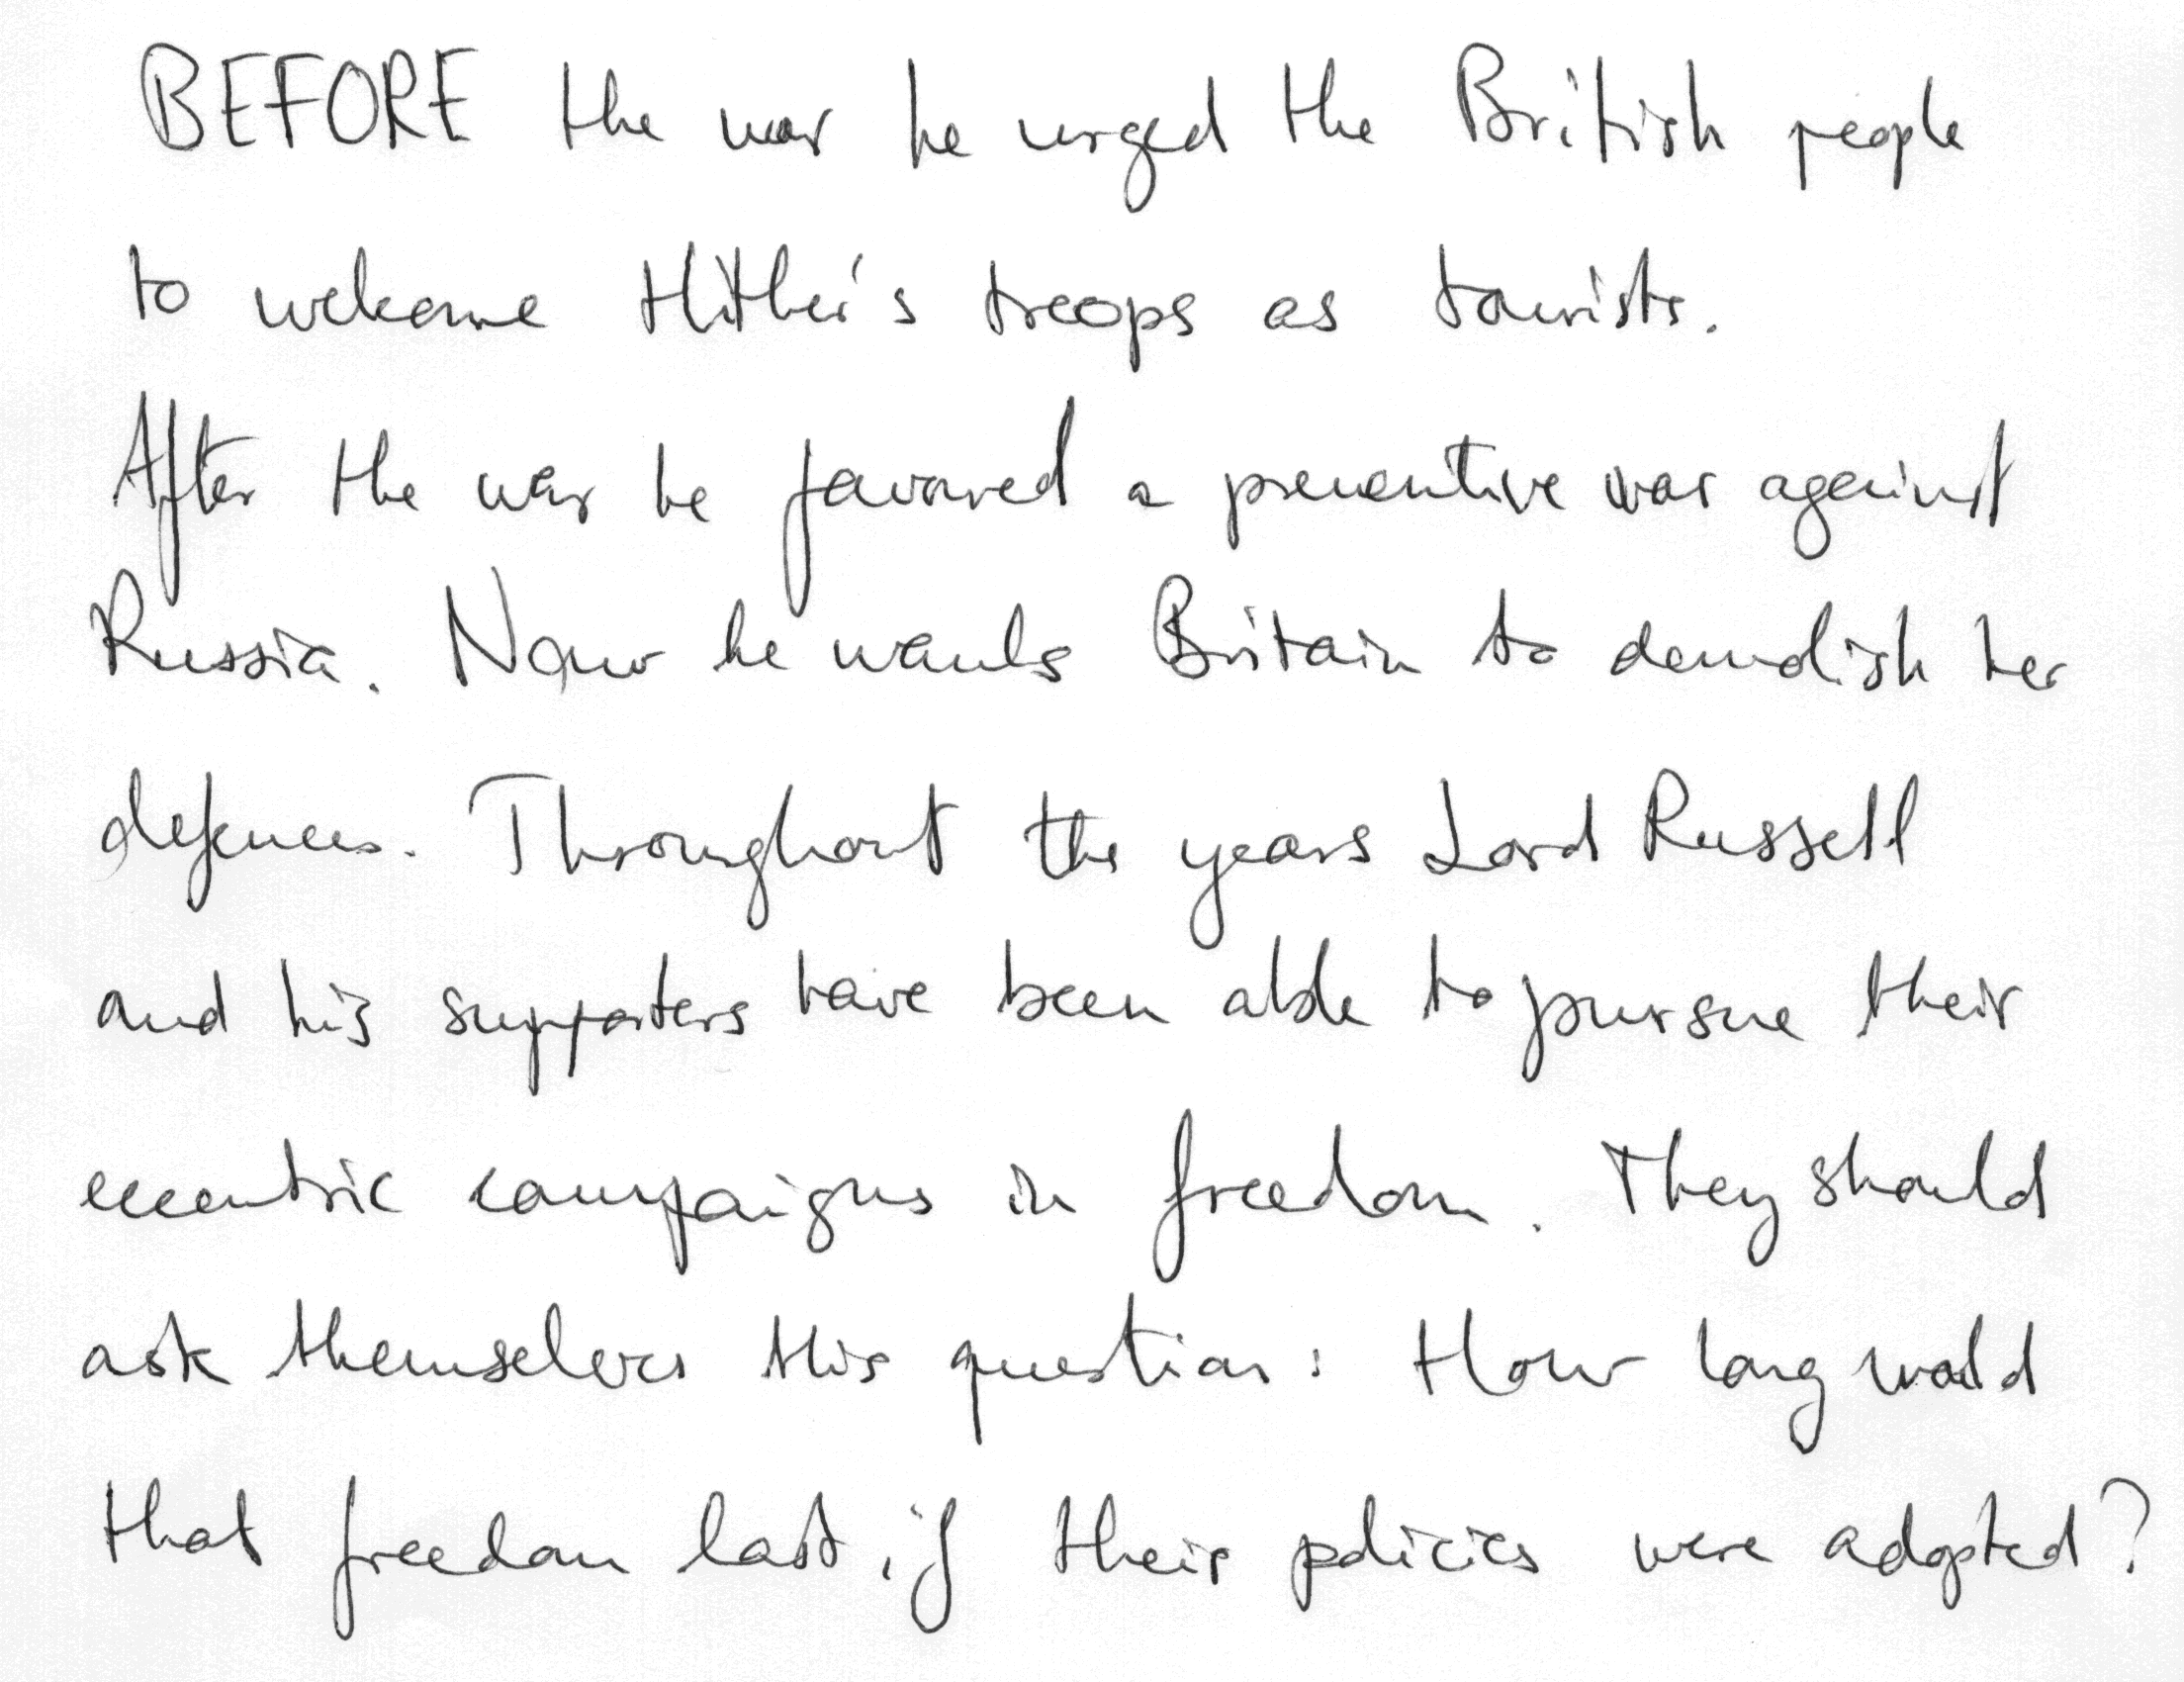 BEFORE the war he urged the British people
to welcome Hitler's troops as tourists.
After the war he favoured a preventive war against
Russia. Now he wants Britain to demolish her
defences. Throughout the years Lord Russell
and his supporters have been able to pursue their
eccentric campaigns in freedom. They should
ask themselves this question: How long would
that freedom last if their policies were adopted?